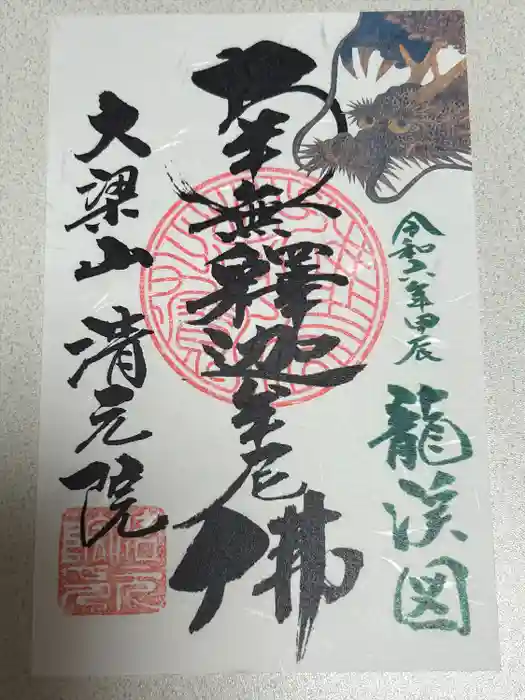 令和六年甲辰
龍渓図
南無釋迦牟尼佛
大梁山 清元院